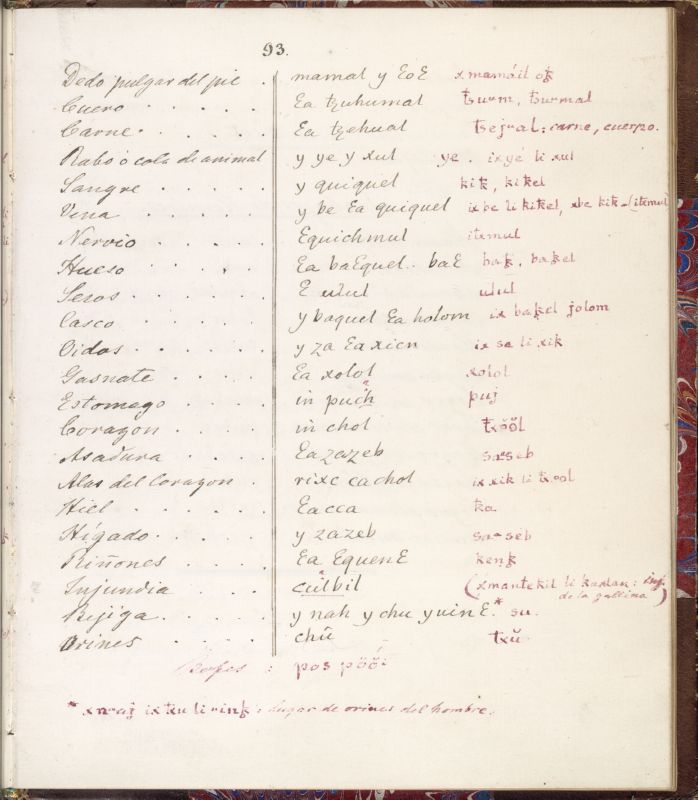 93.
Dedo pulgar del pie . mamal y ƐoƐ x mamáil oꝁ
Cuero . . . . . Ɛa tzuhumal ŧsurm, ŧsurmal
Carne . . . . . Ɛa tzehual ŧsejral: carne, cuerpo.
Rabo ó cola de animal y ye y xul ye . ix yé li xul
Sangre . . . . . y quiquel kiꝁ, kiꝁel
Vena . . . . . y be Ɛa quiquel ix be li kiꝁel, xbe kiꝁ - (itxmul
Nervio . . . . . Ɛquichmul itxmul
Hueso . . . . . Ɛa baƐquel . . baƐ baꝁ, baꝁel
Sesos . . . . . Ɛ ulul ulul
Casco . . . . . y baquel Ɛa holom ix baꝁel jolom
Oidos . . . . . y za Ɛa xicn ix sa li xik
Gasnate . . . . Ɛa xolol xolol
Estomago . . . . in puch puj
Corazon . . . . in chol ŧxŏŏl
Asadura . . . . Ɛa zazeb sa-seb
Alas del Corazon . rixc ca chol ix xik li ŧxool
Hiel . . . . . Ɛa cca ꝁa
Hígado . . . . . y zazeb sa-seb
Riñones . . . . Ɛa ƐquenƐ kenꝁ
Injundia . . . . cuilbil (xmantekil li kaxlan: inj. de la gallina)
Bejiga . . . . . y nah y chu yuinƐ.* su.
Orines . . . . . chŭ ŧxŭ
: pos pŏŏ:
* xnaj ix ŧxu li rinꝁ: lugar de orines del hombre.